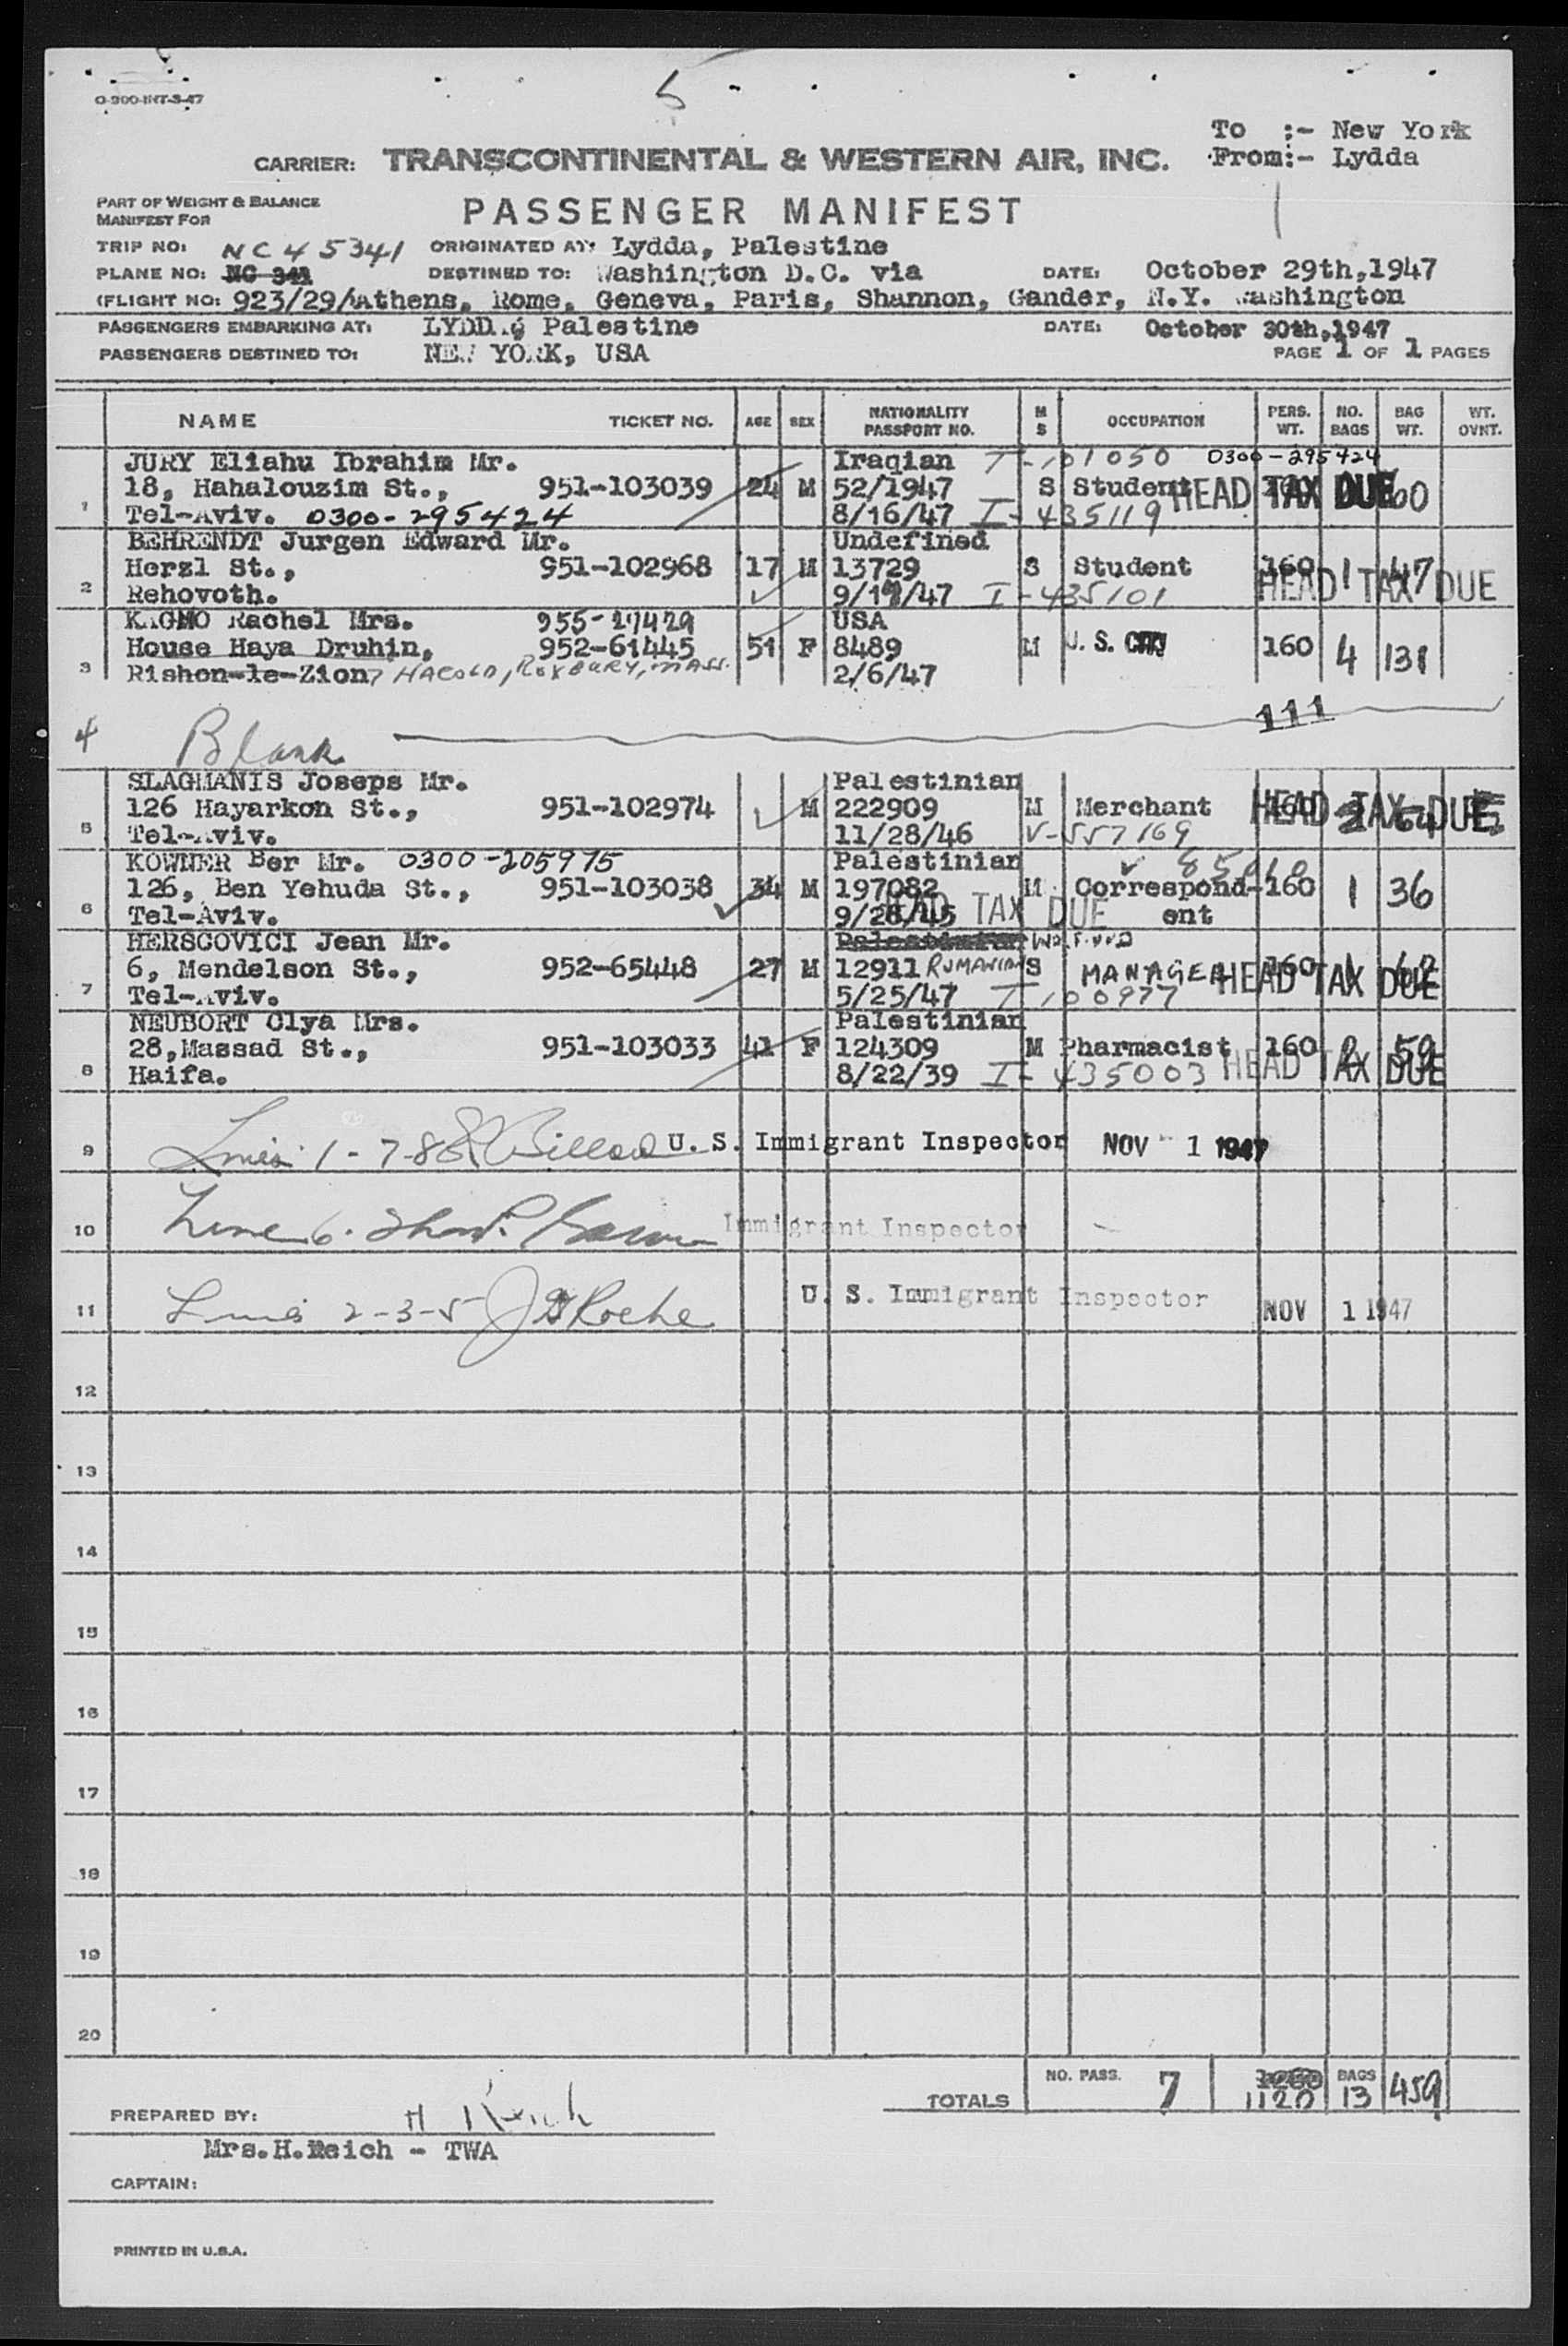 O-300-INT-3-47
5
To :- New York
From:- Lydda
CARRIER: TRANSCONTINENTAL & WESTERN AIR, INC.
PART OF WEIGHT & BALANCE
MANIFEST FOR
PASSENGER MANIFEST
TRIP NO: NC 45341 ORIGINATED AT: Lydda, Palestine
PLANE NO: NC 341 DESTINED TO: Washington D.C. via DATE: October 29th,1947
(FLIGHT NO: 923/29/Athens, Rome, Geneva, Paris, Shannon, Gander, N.Y. Washington
PASSENGERS EMBARKING AT: LYDDA, Palestine DATE: October 30th,1947
PASSENGERS DESTINED TO: NEW YORK, USA PAGE 1 OF 1 PAGES
NAME TICKET NO. AGE SEX NATIONALITY PASSPORT NO. M S OCCUPATION PERS. WT. NO. BAGS BAG WT. WT. OVNT.
JURY Eliahu Ibrahim Mr. Iraqian T-101050 0300-295424
18, Hahalouzim St., 951-103039 24 M 52/1947 S Student HEAD TAX DUE 60
1 Tel-Aviv. 0300-295424 8/16/47 I-435119
BEHRENDT Jurgen Edward Mr. Undefined
Herzl St., 951-102968 17 M 13729 S Student 160 1 47
2 Rehovoth. 9/19/47 I-435101 HEAD TAX DUE
KAGNO Rachel Mrs. 955-27429 USA
House Haya Druhin, 952-61445 51 F 8489 M U. S. 160 4 131
3 Rishon-le-Zion 7 HAROLD, ROXBURY, MASS. 2/6/47
111
4 Blank
SLAGMANIS Joseps Mr. Palestinian
126 Hayarkon St., 951-102974 M 222909 M Merchant 160 2 64 HEAD TAX DUE
5 Tel-Aviv. 11/28/46 V-557169
KOWNER Ber Mr. 0300-205975 Palestinian 85010
126, Ben Yehuda St., 951-103038 34 M 197082 M Correspond- 160 1 36
6 Tel-Aviv. 9/28/45 HEAD TAX DUE ent
HERSCOVICI Jean Mr. Palestinian
6, Mendelson St., 952-65448 27 M 12911 RUMANIAN S MANAGER 160 1 HEAD TAX DUE
7 Tel-Aviv. 5/25/47 T 100977
NEUBORT Olya Mrs. Palestinian
28,Massad St., 951-103033 41 F 124309 M Pharmacist 160 2 59
8 Haifa. 8/22/39 I-435003 HEAD TAX DUE
9 Lines 1-7-8 U. S. Immigrant Inspector NOV 1 1947
10 Line 6. Immigrant Inspector
11 Lines 2-3-5 J Roche U. S. Immigrant Inspector NOV 1 1947
12
13
14
15
16
17
18
19
20
TOTALS NO. PASS. 7 1120 BAGS 13 459
PREPARED BY: H Reich
Mrs.H.Reich - TWA
CAPTAIN:
PRINTED IN U.S.A.